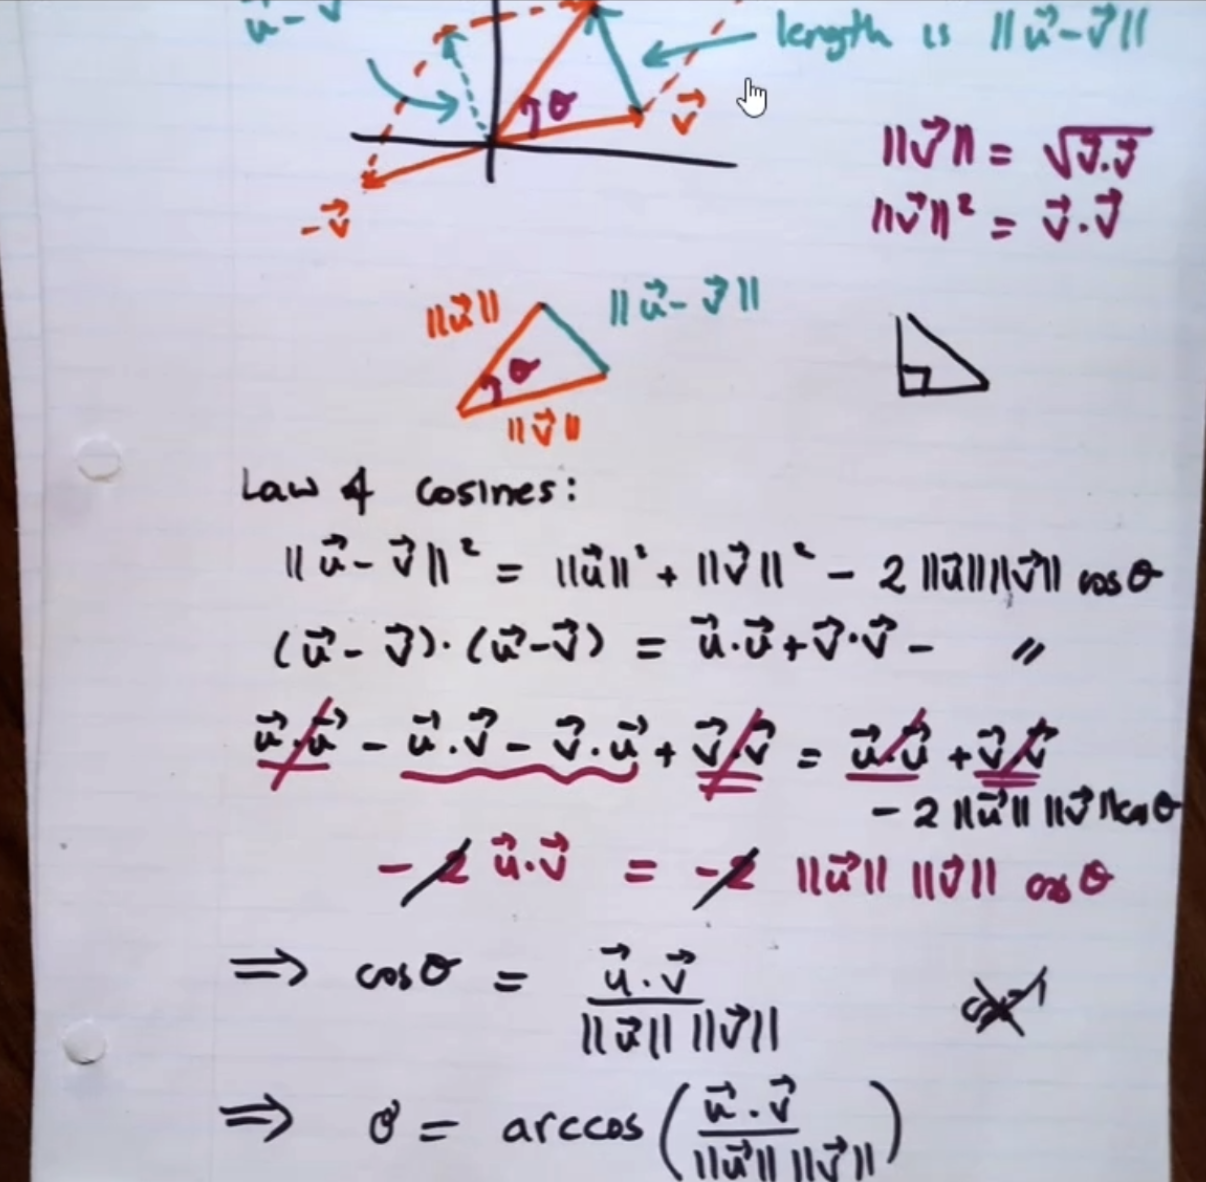 u⃗ - v⃗
length is ||u⃗ - v⃗||
θ
v⃗
||v⃗|| = √v⃗.v⃗
||v⃗||² = v⃗.v⃗
-v⃗
||u⃗||
||u⃗ - v⃗||
θ
||v⃗||
Law of cosines:
||u⃗ - v⃗||² = ||u⃗||² + ||v⃗||² - 2 ||u⃗|| ||v⃗|| cosθ
(u⃗ - v⃗)·(u⃗ - v⃗) = u⃗.u⃗ + v⃗.v⃗ - 〃
u⃗.u⃗ - u⃗.v⃗ - v⃗.u⃗ + v⃗.v⃗ = u⃗.u⃗ + v⃗.v⃗
- 2 ||u⃗|| ||v⃗|| cosθ
- 2 u⃗.v⃗ = - 2 ||u⃗|| ||v⃗|| cosθ
⟹ cosθ = u⃗.v⃗ / ||u⃗|| ||v⃗||
⟹ θ = arccos(u⃗.v⃗ / ||u⃗|| ||v⃗||)